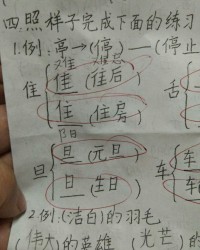 四.照样子完成下面的练习
1.例:亭→(停)—(停止
难 难忘
佳 (佳后)
隹
住 (住房) 舌
阳
旦 (元旦) 车
旦
日 (生日) 车
2例:(洁白)的羽毛
(伟大)的英雄 (光芒)的